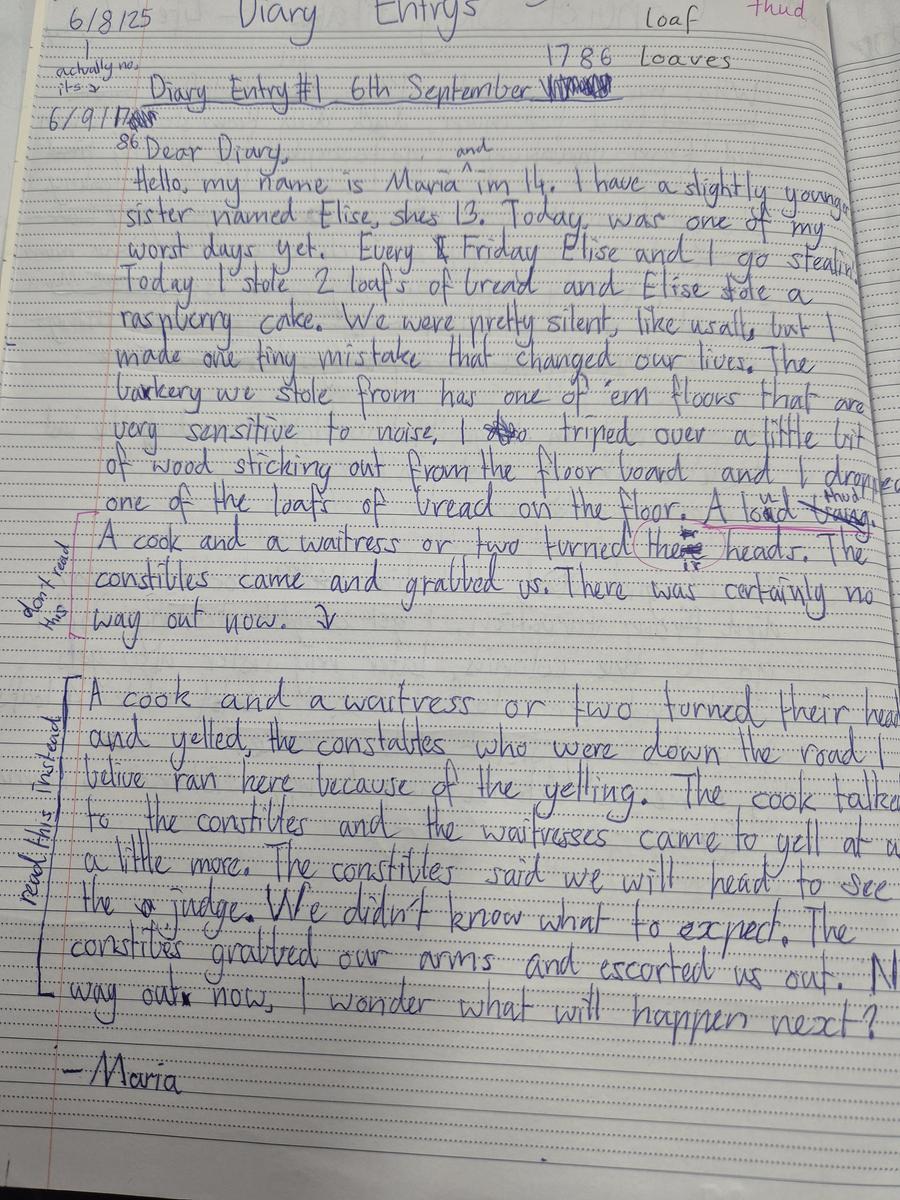 6/8/25 Diary Entrys loaf thud
1786 Loaves
actually no,
its
Diary Entry #1 6th September
6/9/17
86 Dear Diary,
and
Hello, my name is Maria im 14. I have a slightly younge
sister named Elise, shes 13. Today, was one of my
worst days yet. Every Friday Elise and I go stealin
Today I stole 2 loafs of bread and Elise stole a
raspberry cake. We were pretty silent, like usall, but I
made one tiny mistake that changed our lives. The
barkery we stole from has one of 'em floors that are
very sensitive to noise, I triped over a little bit
of wood sticking out from the floor board and I dropped
one of the loafs of bread on the floor. A loud thud.
don't read this
A cook and a waitress or two turned their heads. The
constibles came and grabbed us. There was certainly no
way out now. ↓
read this instead
A cook and a waitress or two turned their head
and yelled, the constables who were down the road I
belive ran here because of the yelling. The cook talke
to the constibles and the waitresses came to yell at u
a little more. The constibles said we will head to see
the judge. We didn't know what to expect. The
constibles grabbed our arms and escorted us out. N
way out now, I wonder what will happen next?
- Maria